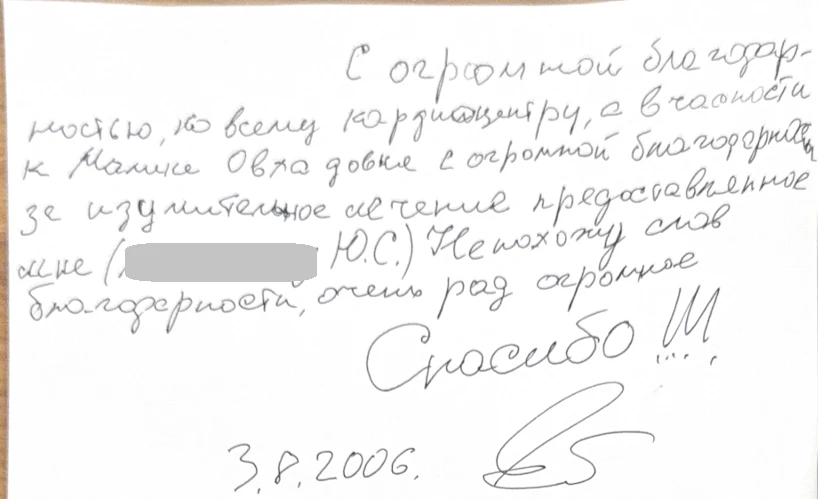 С огромной благодар-
ностью, ко всему кардиоцентру, а в часности
к Малике Овхадовне с огромной благодарностью
за изумительное лечение предоставленное
мне ( Ю.С.) Не похожу слов
благодарности, очень рад огромное
Спасибо!!!
3.8.2006.